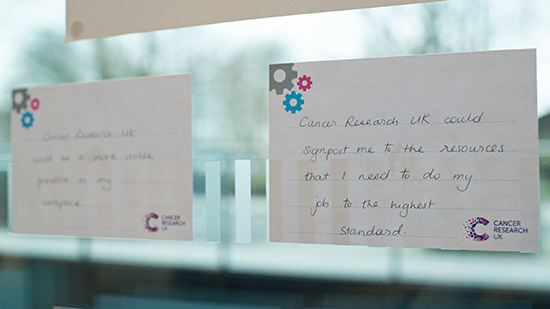 Cancer Research UK
could be a more visible
presence in my
workplace.
CANCER
RESEARCH
UK
Cancer Research UK could
signpost me to the resources
that I need to do my
job to the highest
standard.
CANCER
RESEARCH
UK